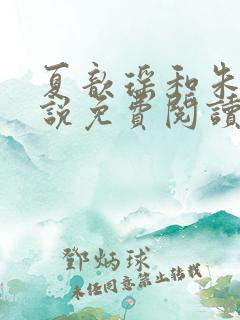 夏歆瑶和朱
說免費閱讀
鄧炳球
未经同意禁止转载